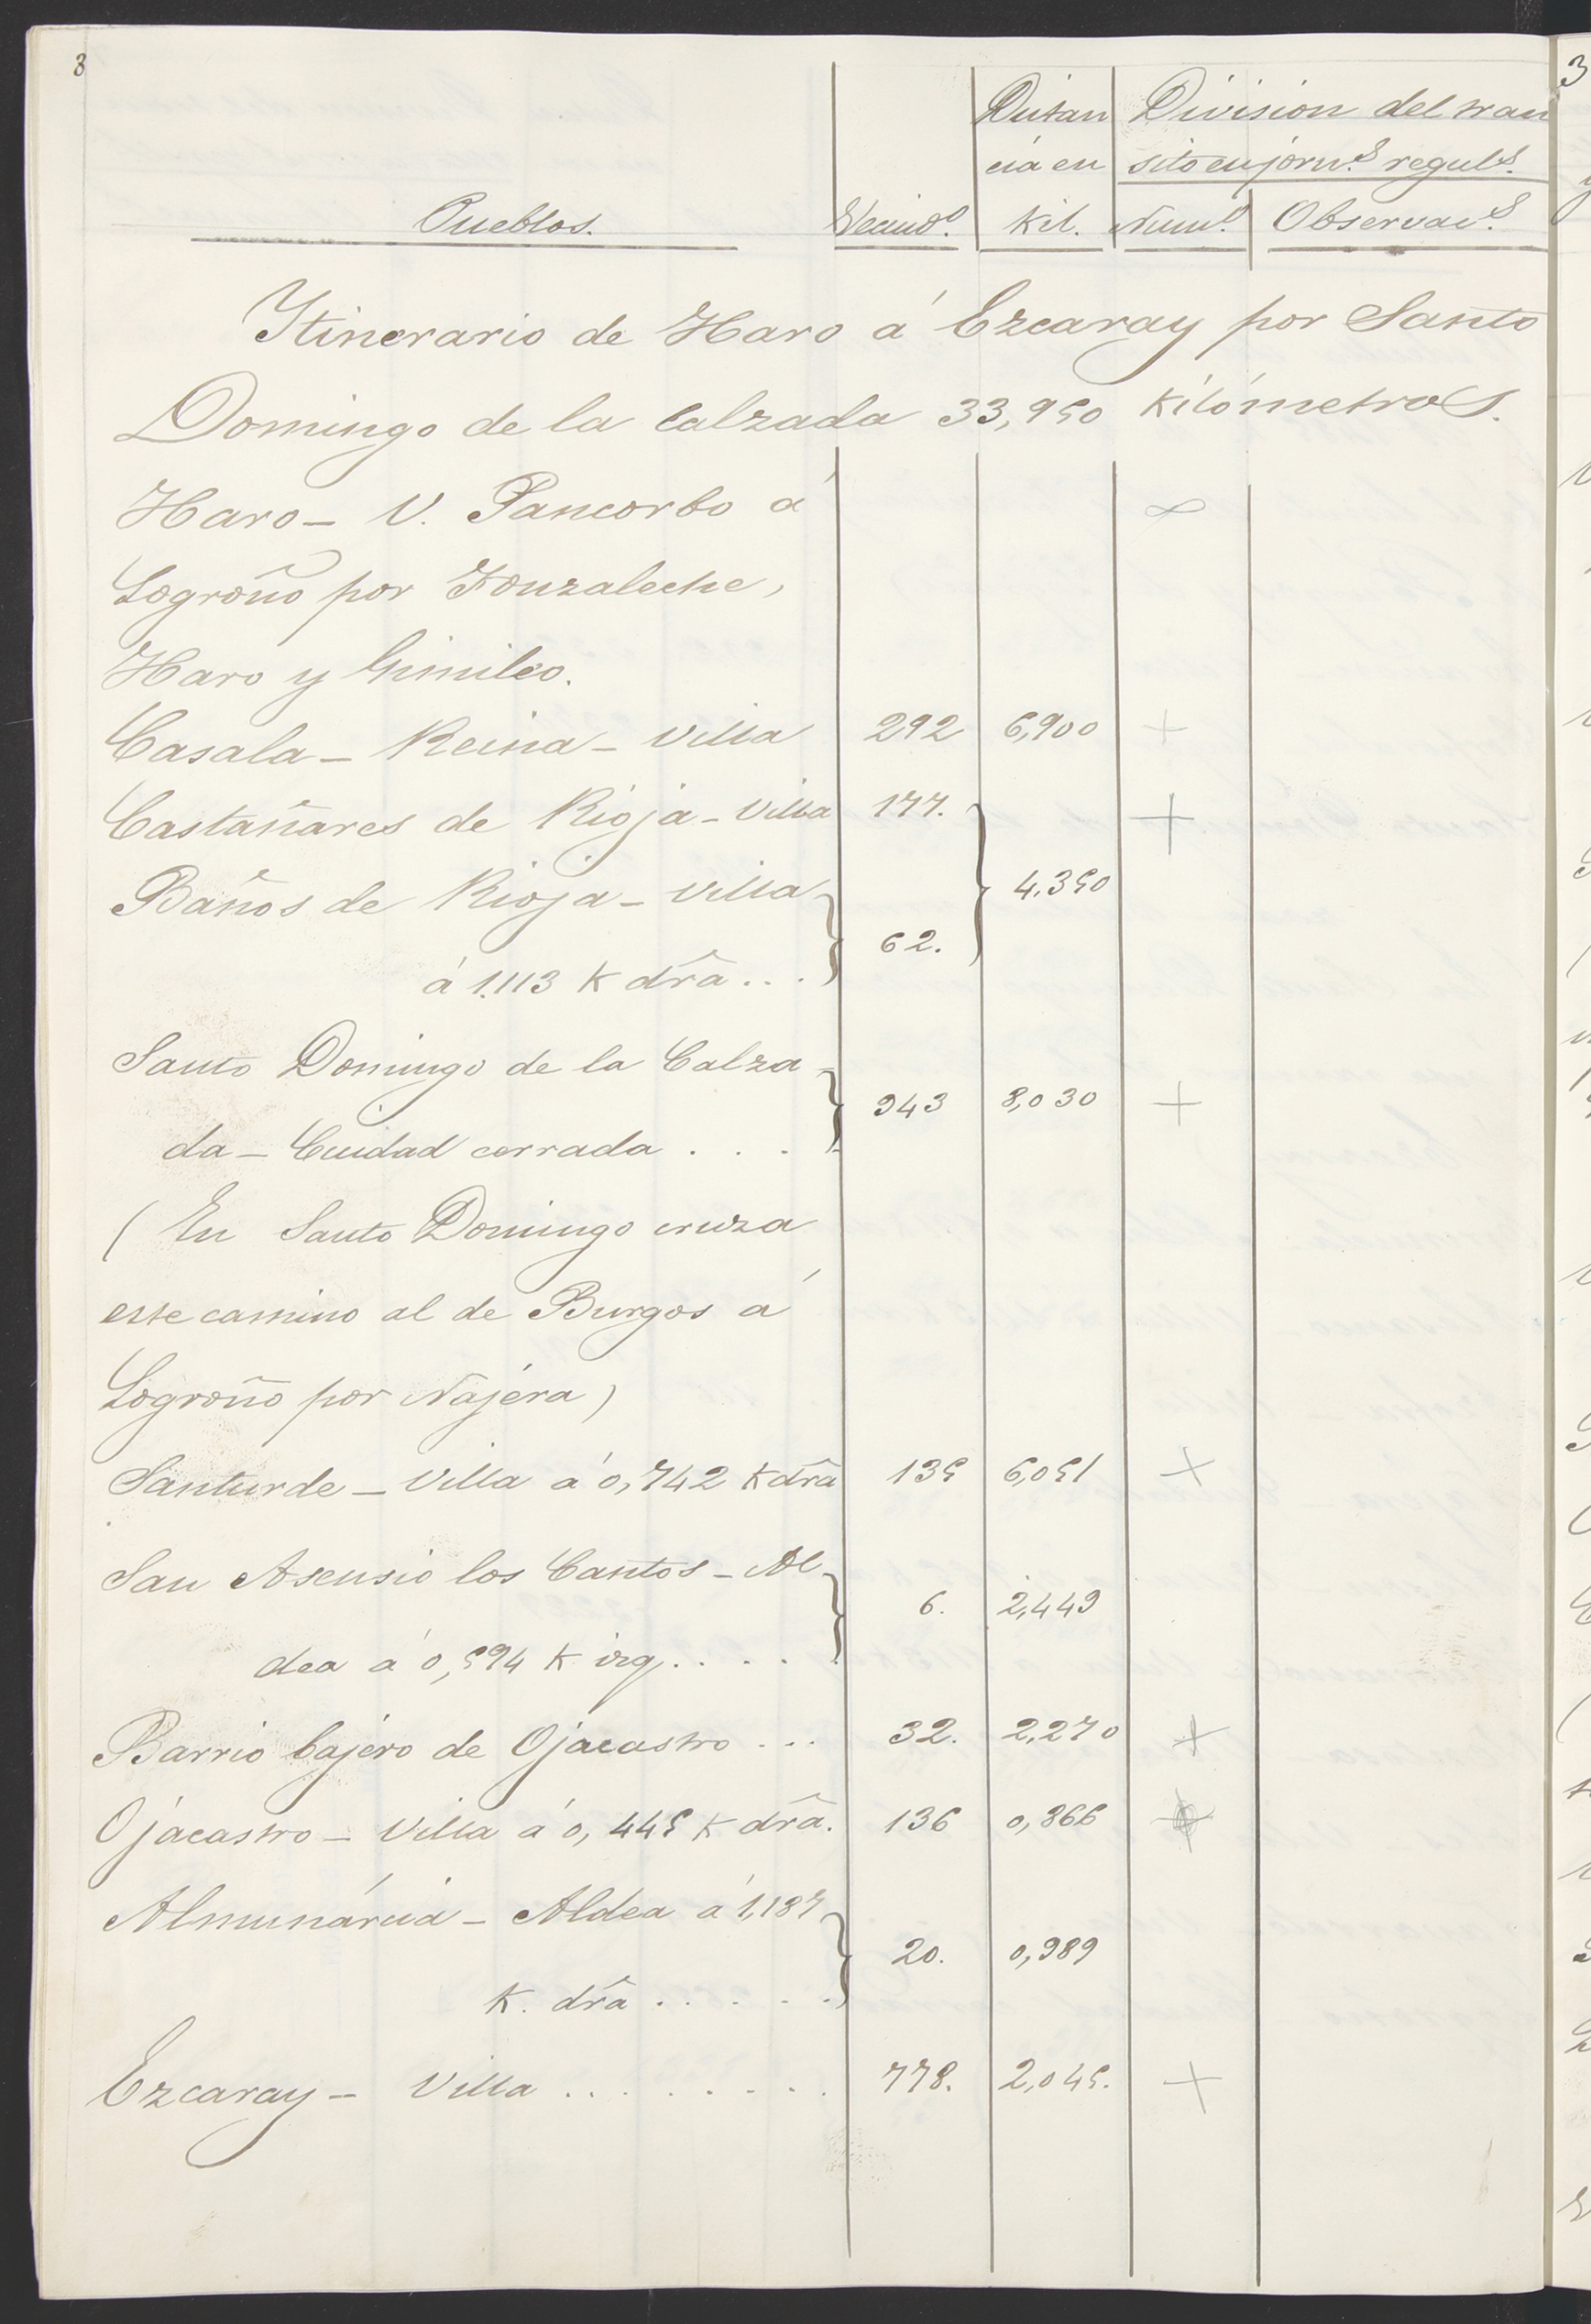 8
Distan Division del tran
cia en sito en jorn.s regul.s
Pueblos. Vecind.o Kil. Num.o Observac.s
Itinerario de Haro á Ezcaray por Santo
Domingo de la Calzada 33,950 Kilómetros.
Haro - V. Pancorbo á
Logroño por Fonzaleche,
Haro y Gimileo.
Casala - Reina - Villa 292 6,900 +
Castañares de Rioja - Villa 177. +
Baños de Rioja - Villa 4,350
á 1.113 K dr̃a ... 62.
Santo Domingo de la Calza
da - Ciudad cerrada . . . 943 8,030 +
(En Santo Domingo cruza
este camino al de Burgos á
Logroño por Najera)
Santurde - Villa á 0,742 K dr̃a 135 6,051 +
San Asensio los Cantos - Al
dea á 0,594 K izq. . . . 6. 2,449
Barrio bajero de Ojacastro ... 32. 2,270 +
Ojacastro - Villa á 0,445 K dr̃a. 136 0,866 +
Almunárcia - Aldea á 1,187
K. dr̃a . . . . . 20. 0,989
Ezcaray - Villa . . . . . . . . 778. 2,045. +